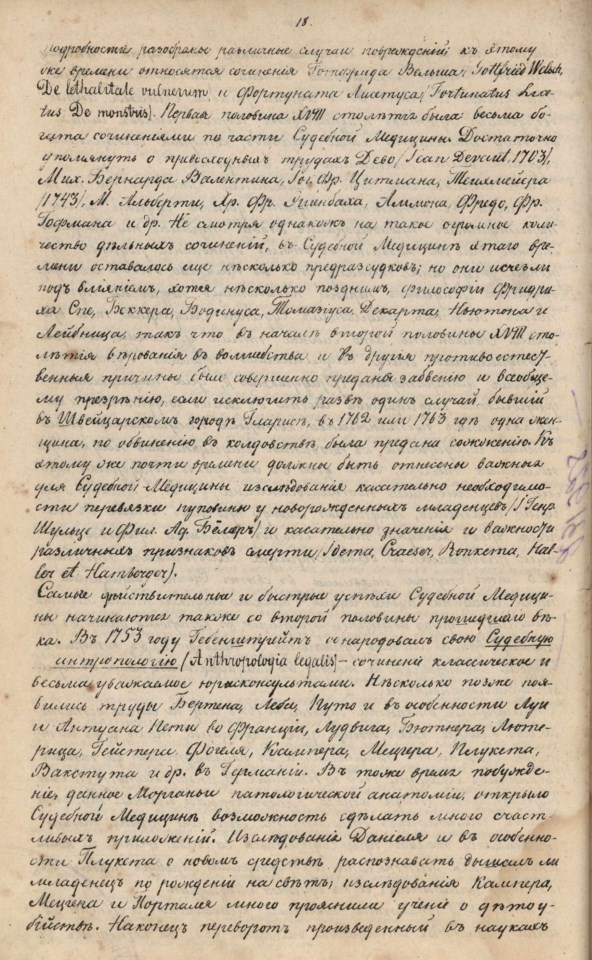 18.
подробностію разобраны различные случаи поврежденій; къ этому
же времени относятся сочиненія Готфрида Вельша, Gottfried Welsch,
De lethalitate vulnerum и Фортуната Лицетуса, Fortunatus Lice-
tus De monstris). Первая половина XVIII столѣтія была весьма бо-
гата сочиненіями по части Судебной Медицины. Достаточно
упомянуть о превосходныхъ трудахъ Дево /Jean Devaux 1703/,
Мих. Бернарда Валентина, Фр. Цитмана, Тейхмейера
/1743/, М. Альберти, Хр. Фр. Эшенбаха, Фредо, Фр.
Гофмана и др. Не смотря однакожъ на такое огромное коли-
чество дѣльныхъ сочиненій, въ Судебной Медицинѣ этаго вре-
мени оставалось еще нѣсколько предразсудковъ; но они исчезли
подъ вліяніемъ, хотя нѣсколько позднимъ, философіи Фридри-
ха Спе, Беккера, Бодинуса, Томазіуса, Декарта, Ньютона и
Лейбница, такъ что въ началѣ второй половины XVIII сто-
лѣтія вѣрованія въ волшебства и въ другія противоестест-
венныя причины было совершенно предано забвенію и всеобще-
му презрѣнію, если исключить развѣ одинъ случай, бывшій
въ Швейцарскомъ городѣ Гларисѣ, въ 1762 или 1763 гдѣ одна жен-
щина, по обвиненію въ колдовствѣ была предана сожженію. Къ
этому же почти времени должны быть отнесены важныя
для Судебной Медицины изслѣдованія касательно необходимо-
сти перевязки пуповины у новорожденныхъ младенцевъ /Генр.
Шульце и Фил. Ад. Бёмеръ/ и касательно значенія и важности
различныхъ признаковъ смерти /Idema, Craeser, Ronketa, Hal-
ler et Hamberger).
Самые дѣйствительные и быстрые успѣхи Судебной Медици-
ны начинаются также со второй половины прошедшаго вѣ-
ка. Въ 1753 году Гебенштрейтъ обнародовалъ свою Судебную
антропологію /Anthropologia legalis/ – сочиненіе классическое и
весьма уважаемое юрисконсультами. Нѣсколько позже поя-
вились труды Бертена, Леба, Путо и въ особенности Луи
и Антуана Пети во Франціи, Лудвига, Бютнера, Люте-
рица, Гейстера Фогеля, Кампера, Мецгера, Плукета,
Вакстута и др. въ Германіи. Въ тоже время побужде-
ніе, данное Морганьи патологической анатоміи, открыло
Судебной Медицинѣ возможность сдѣлать много счаст-
ливыхъ приложеній. Изслѣдованія Даніеля и въ особенно-
сти Плукета о новомъ средствѣ распознавать дышалъ ли
младенецъ по рожденіи на свѣтъ; изслѣдованія Кампера,
Мецгена и Порталя много прояснили ученіе о дѣтоу-
бійствѣ. Наконецъ переворотъ произведенный въ наукахъ